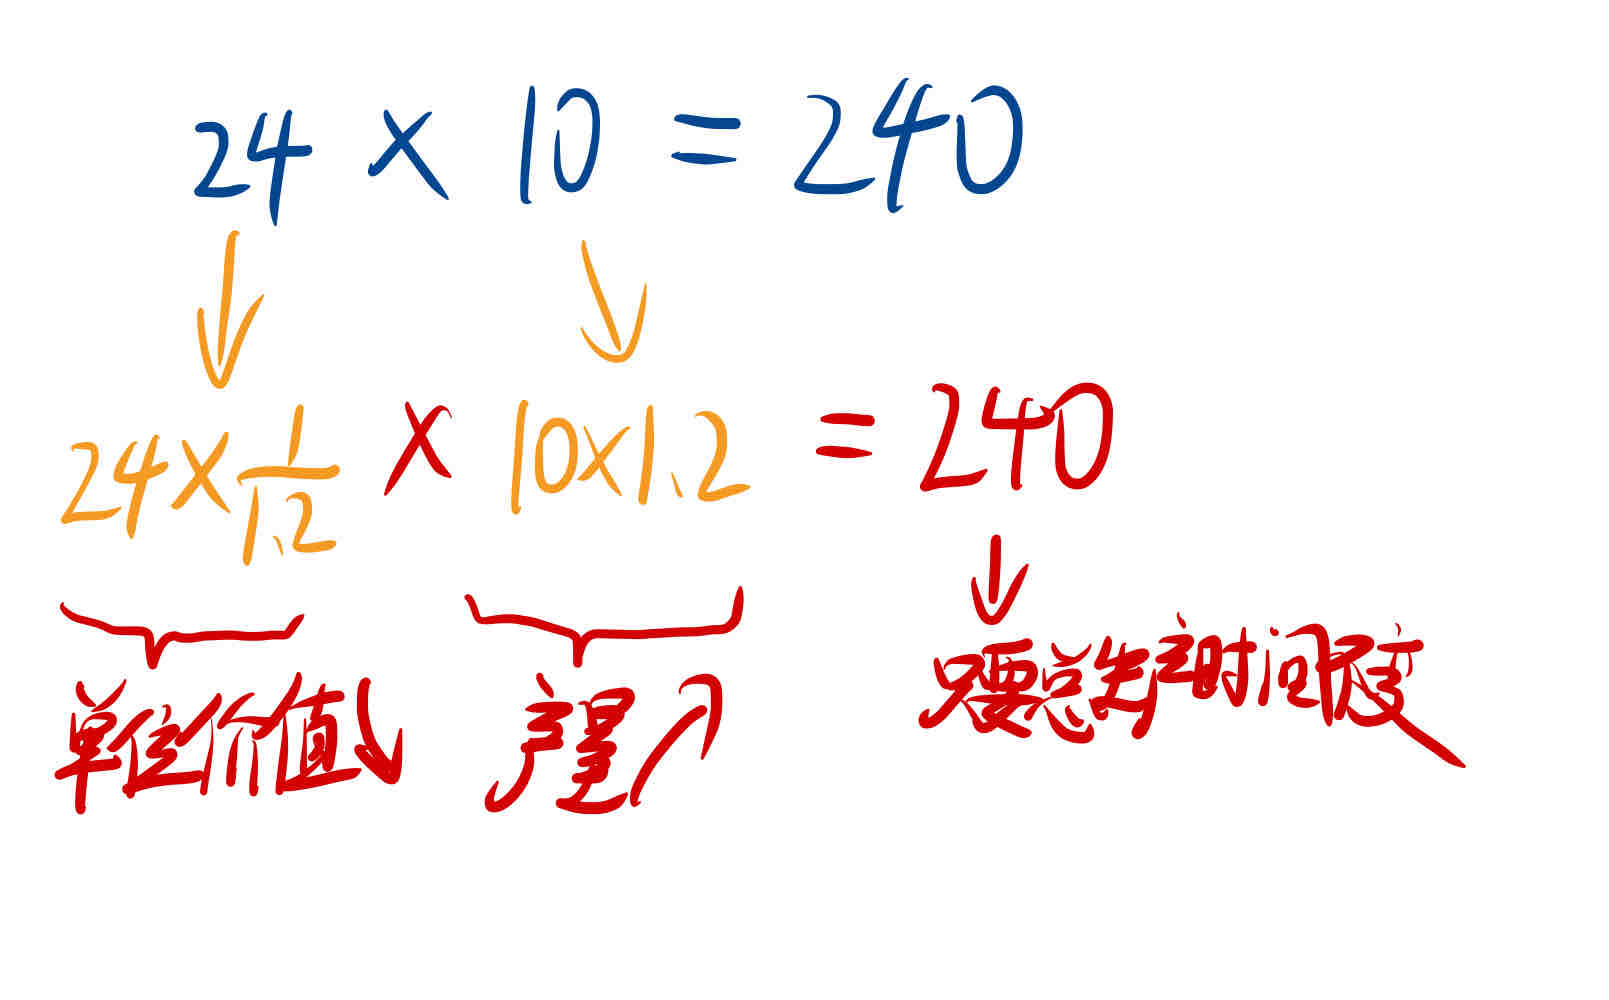 24 × 10 = 240
24×1/1.2 × 10×1.2 = 240
单位价值↓ 产量↑ 只要总劳动时间不变